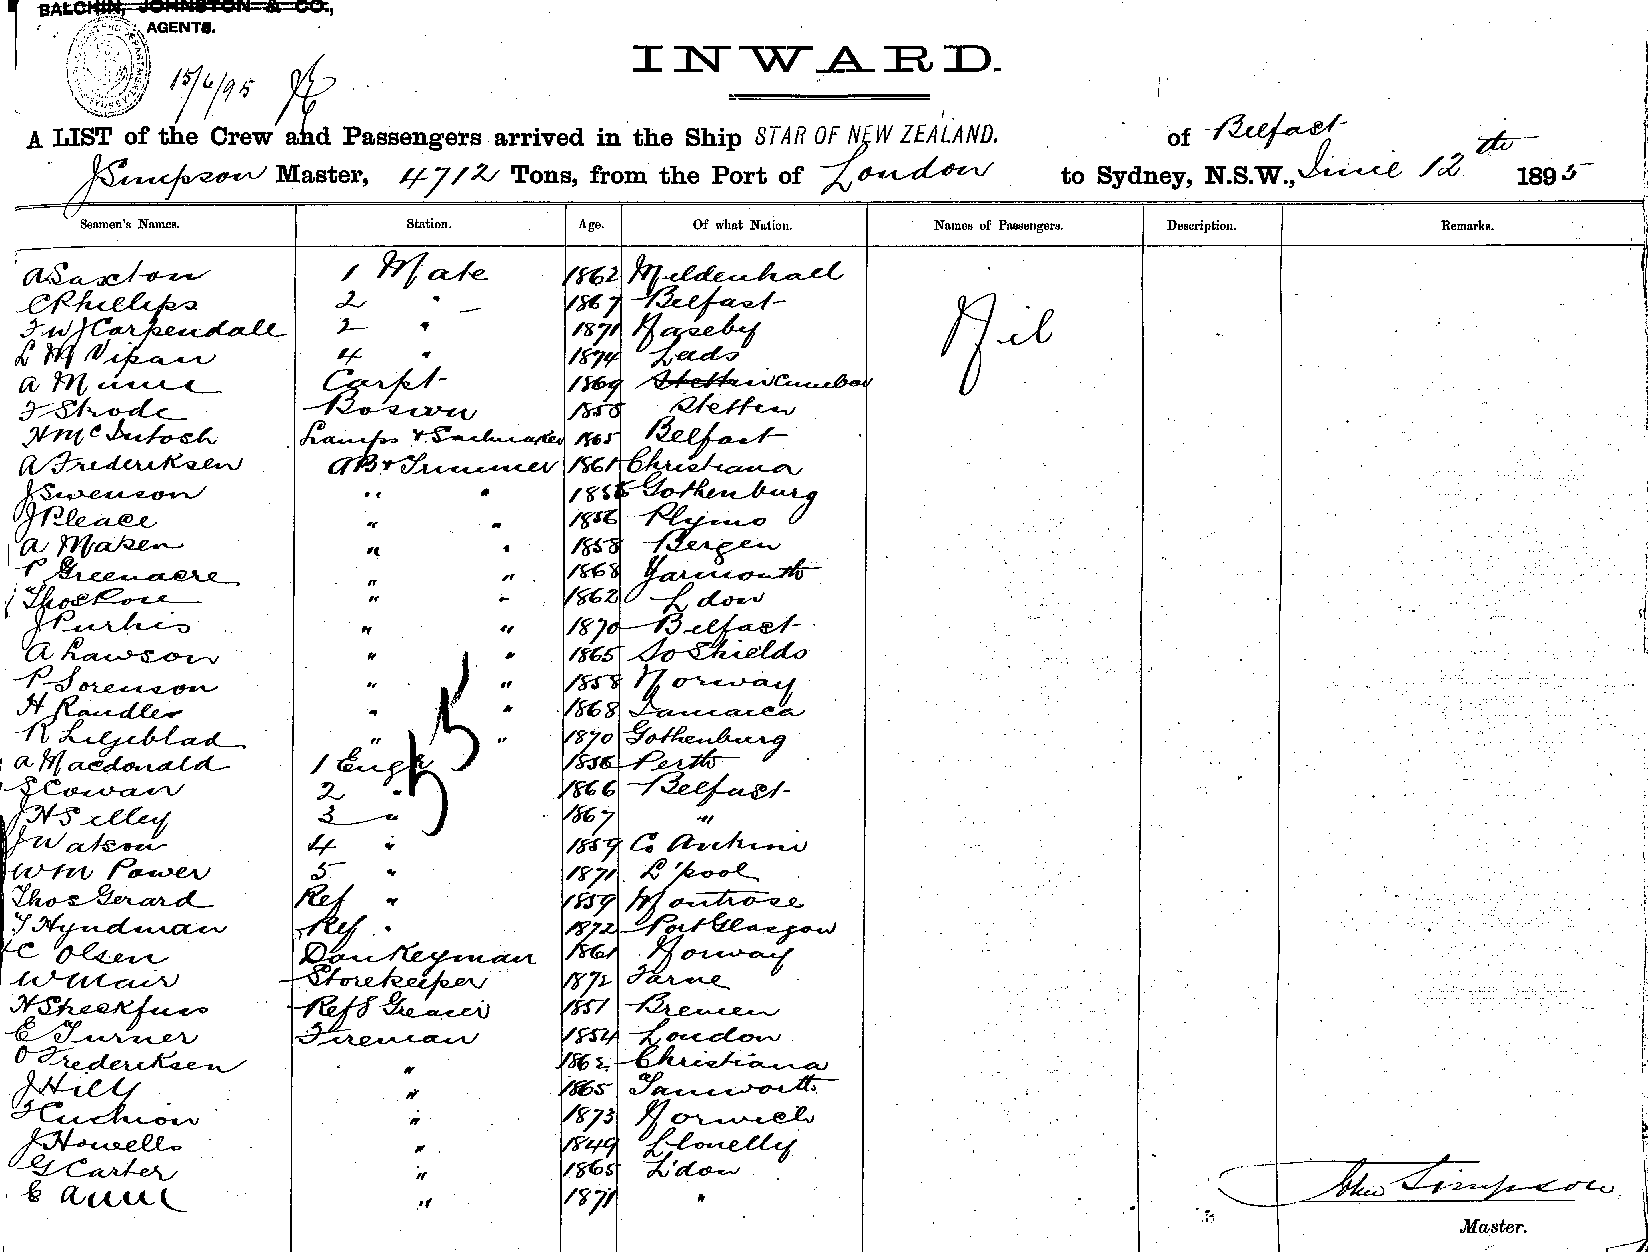 BALCHIN, JOHNSTON & CO.,
AGENTS.
15/6/95
INWARD.
A LIST of the Crew and Passengers arrived in the Ship STAR OF NEW ZEALAND. of Belfast
J Simpson Master, 4712 Tons, from the Port of London to Sydney, N.S.W., June 12th 1895
Seamen's Names. Station. Age. Of what Nation. Names of Passengers. Description. Remarks.
A Saxton 1 Mate 1862 Mildenhall
C Phillips 2 " 1867 Belfast Nil
F W J Carpendale 2 " 1871 Naseby
L M Vipan 4 " 1874 Leeds
A Carpt 1869 Stettin
F Strode Boswn 1858 Stetten
H McIntosh Lamps & Sailmaker 1865 Belfast
A Frederiksen AB & Trimmer 1861 Christiana
J Swenson " " 1855 Gothenburg
J Pleace " " 1856 Plymo
A Maken " " 1858 Bergen
P Greenacre " " 1868 Yarmouth
Thos Rose " " 1862 Ldon
J Purkis " " 1870 Belfast
A Lawson " " 1865 So Shields
P Sorenson " " 1858 Norway
H Randles " " 1868 Jamaica
R Liljeblad " " 1870 Gothenburg
A Macdonald 1 Engr 1856 Perth
S Cowan 2 " 1866 Belfast
J H Silley 3 " 1867 "
J Watson 4 " 1859 Co Antrim
Wm Power 5 " 1871 L'pool
Thos Gerard Ref " 1859 Montrose
T Hyndman Ref " 1872 Port Glasgow
C Olsen Donkeyman 1861 Norway
W Mair Storekeeper 1872 Larne
H Sheckfuss Ref & Greaser 1851 Bremen
E Turner Fireman 1854 London
O Frederiksen " 1862 Christiana
J Hill " 1865 Tamworth
F Cushion " 1873 Norwich
J Howells " 1849 Llonelly
G Carter " 1865 L'don
E " 1871 "
John Simpson
Master.